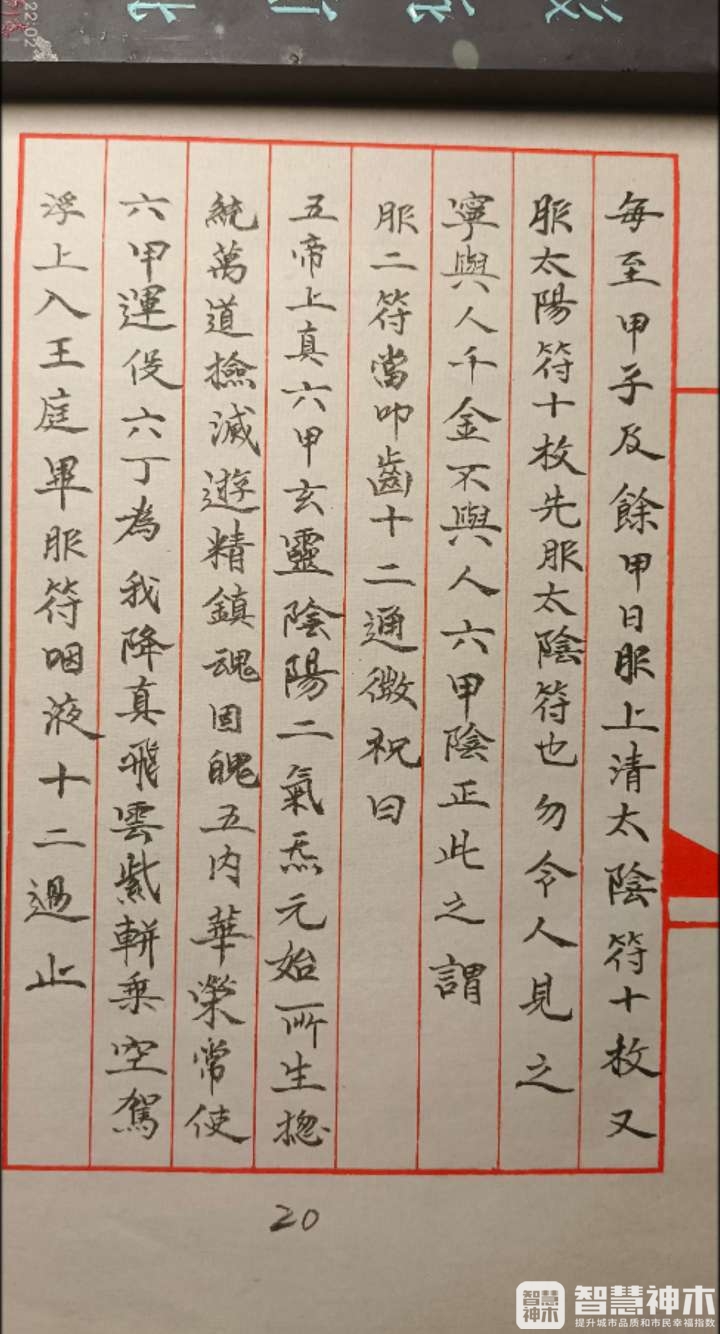 每至甲子及餘甲日服上清太陰符十枚又
服太陽符十枚先服太陰符也勿令人見之
寧與人千金不與人六甲陰正此之謂
服二符當叩齒十二通微祝曰
五帝上真六甲玄靈陰陽二氣炁元始所生揔
統萬道撿滅遊精鎮魂固魄五內華榮常使
六甲運役六丁為我降真飛雲紫軿乘空駕
浮上入王庭畢服符咽液十二過止
20
智慧神木
提升城市品质和市民幸福指数